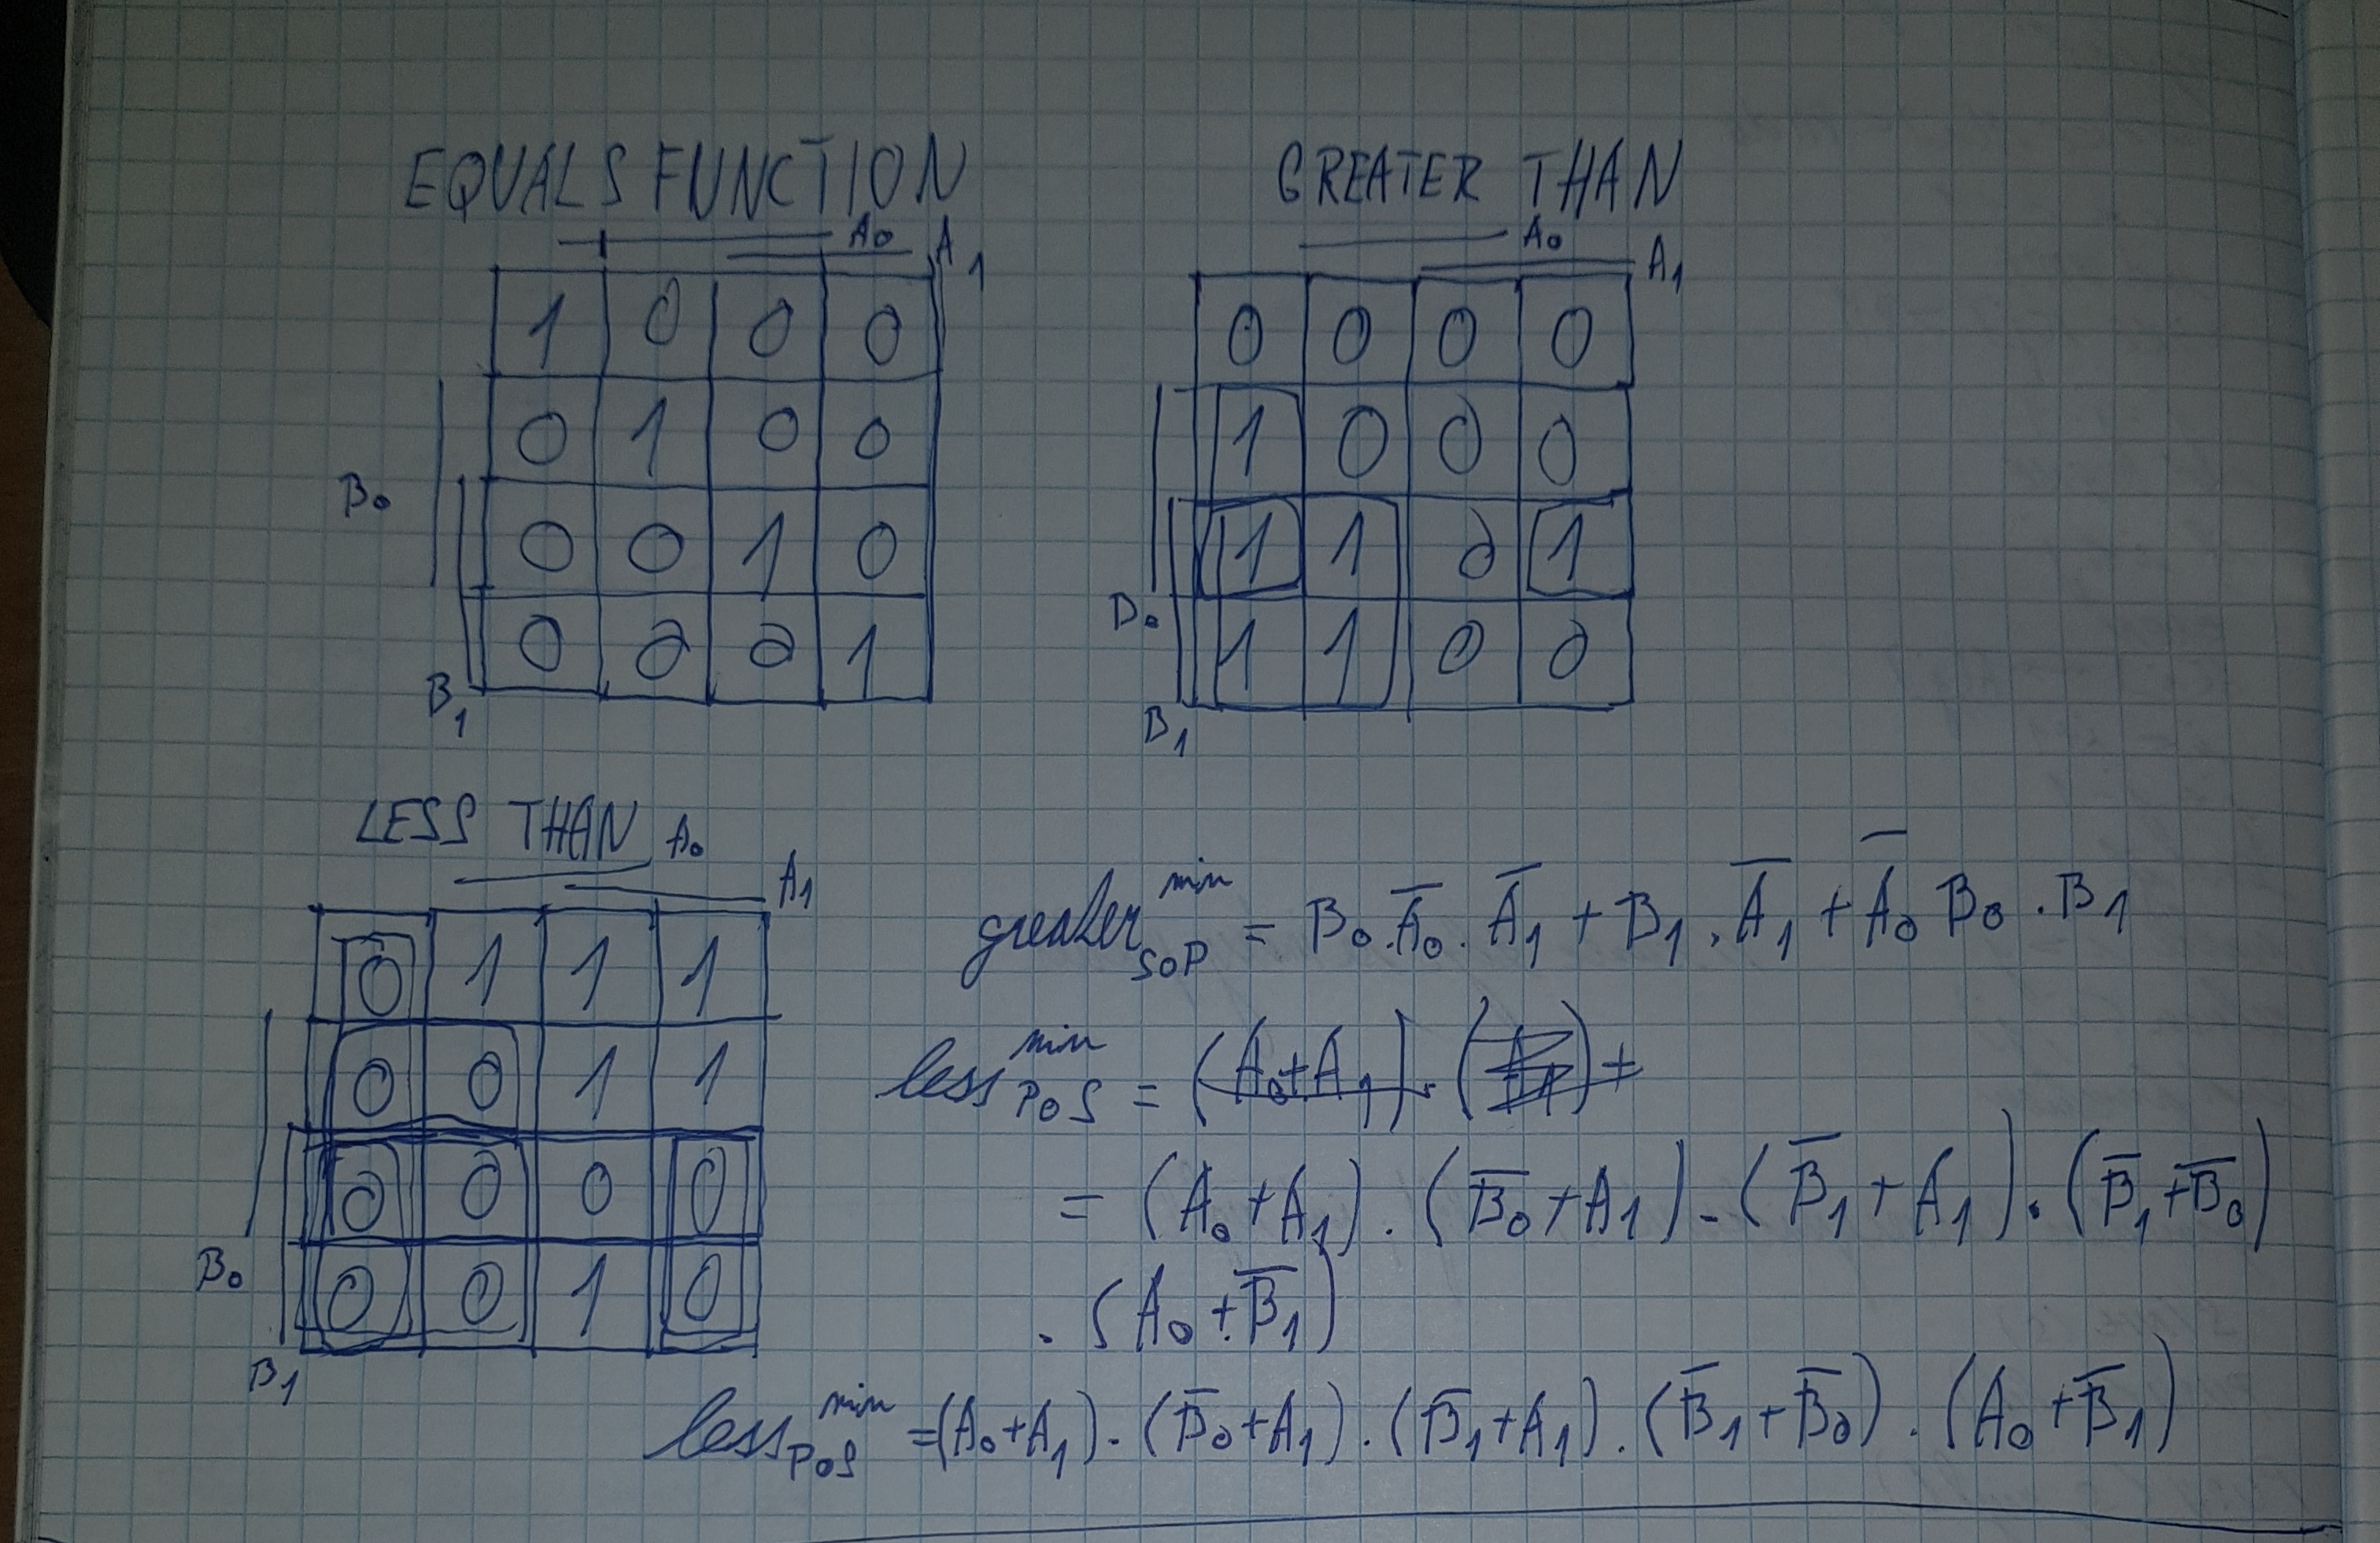 EQUALS FUNCTION
A₀ A₁
1 0 0 0
0 1 0 0
B₀
0 0 1 0
0 0 0 1
B₁
GREATER THAN
A₀ A₁
0 0 0 0
1 0 0 0
1 1 0 1
B₀
1 1 0 0
B₁
LESS THAN A₀
A₁
0 1 1 1
0 0 1 1
0 0 0 0
B₀
0 0 1 0
B₁
greater^min_SOP = B₀.A̅₀.A̅₁ + B₁.A̅₁ + A̅₀ B₀.B₁
less^min_POS = (A₀+A₁).( )+
= (A₀+A₁).(B̅₀+A₁).(B̅₁+A₁).(B̅₁+B̅₀)
.(A₀+B̅₁)
less^min_POS =(A₀+A₁).(B̅₀+A₁).(B̅₁+A₁).(B̅₁+B̅₀).(A₀+B̅₁)